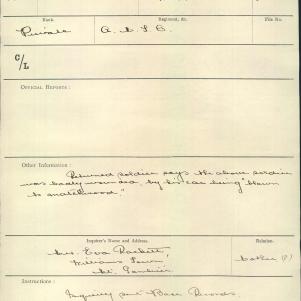 Rank.
Regiment, &c.
File No.
Private
A.I.F.
C/L
OFFICIAL REPORTS :
Other Information :
Returned soldier says the above soldier
was badly wounded, by his " being "blown
to matchwood."
Inquirer's Name and Address.
Relation.
Mrs. Eva Rackett
Williams Town
Mt. Gambier
Instructions :
Inquiry sent Base Records.